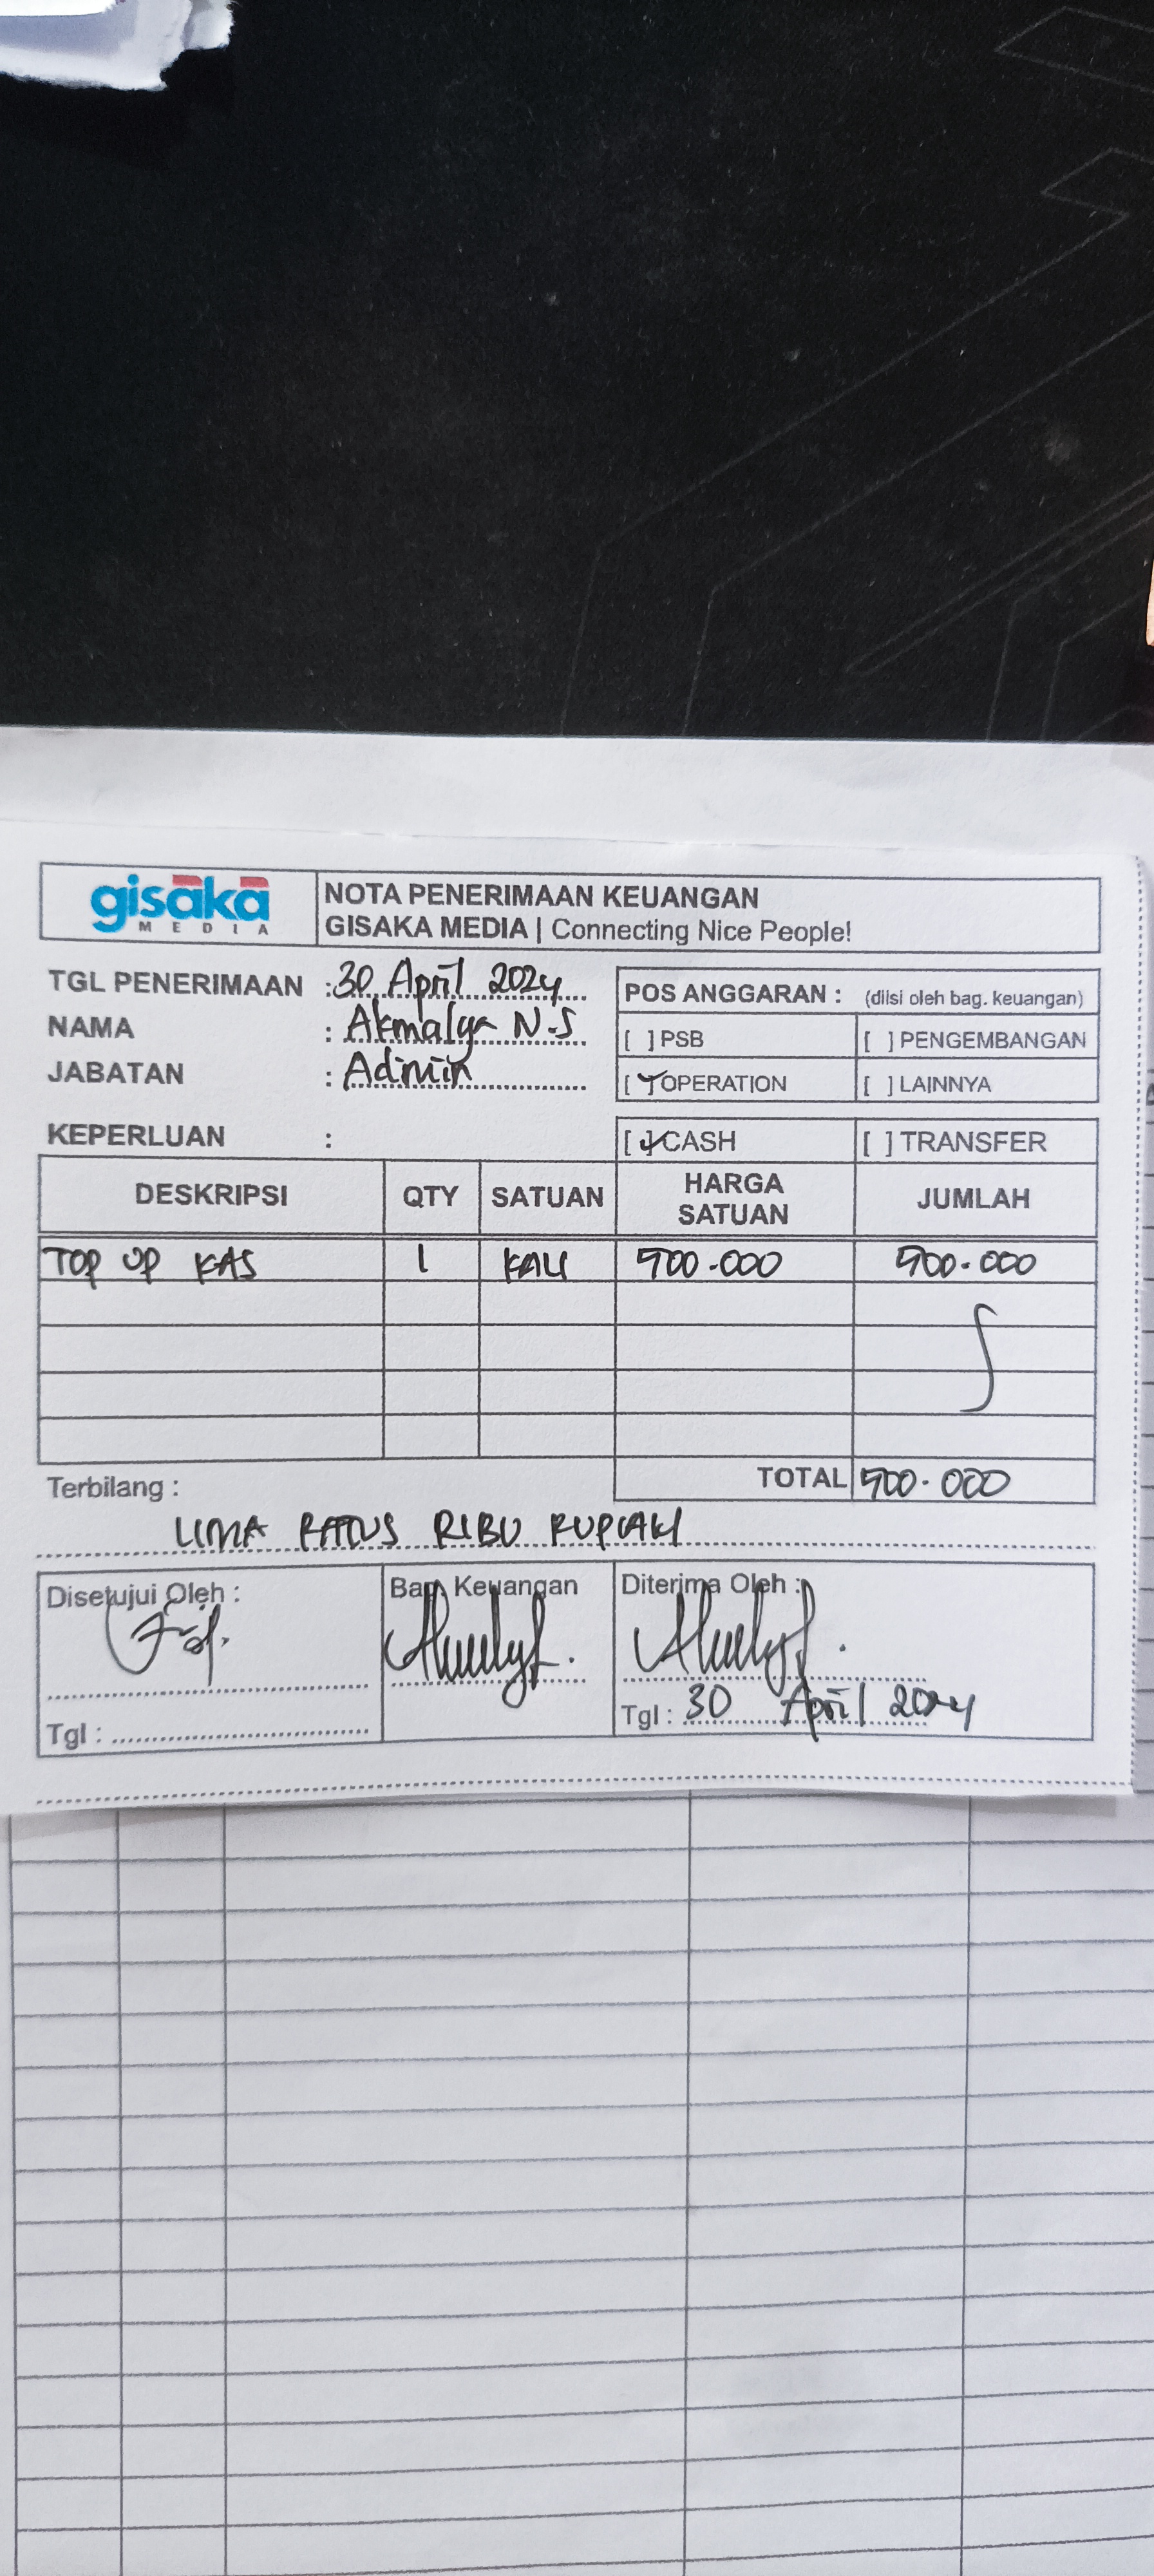 gisaka
MEDIA
NOTA PENERIMAAN KEUANGAN
GISAKA MEDIA | Connecting Nice People!
TGL PENERIMAAN : 30 April 2024
NAMA : Akmalya N.S
JABATAN : Admin
POS ANGGARAN : (diisi oleh bag. keuangan)
[ ] PSB [ ] PENGEMBANGAN
[✓] OPERATION [ ] LAINNYA
KEPERLUAN :
[✓] CASH [ ] TRANSFER
DESKRIPSI QTY SATUAN HARGA SATUAN JUMLAH
TOP UP KAS 1 KALI 500.000 500.000
TOTAL 500.000
Terbilang :
LIMA RATUS RIBU RUPIAH
Disetujui Oleh : Bag. Keuangan Diterima Oleh :
Tgl : Tgl : 30 April 2024